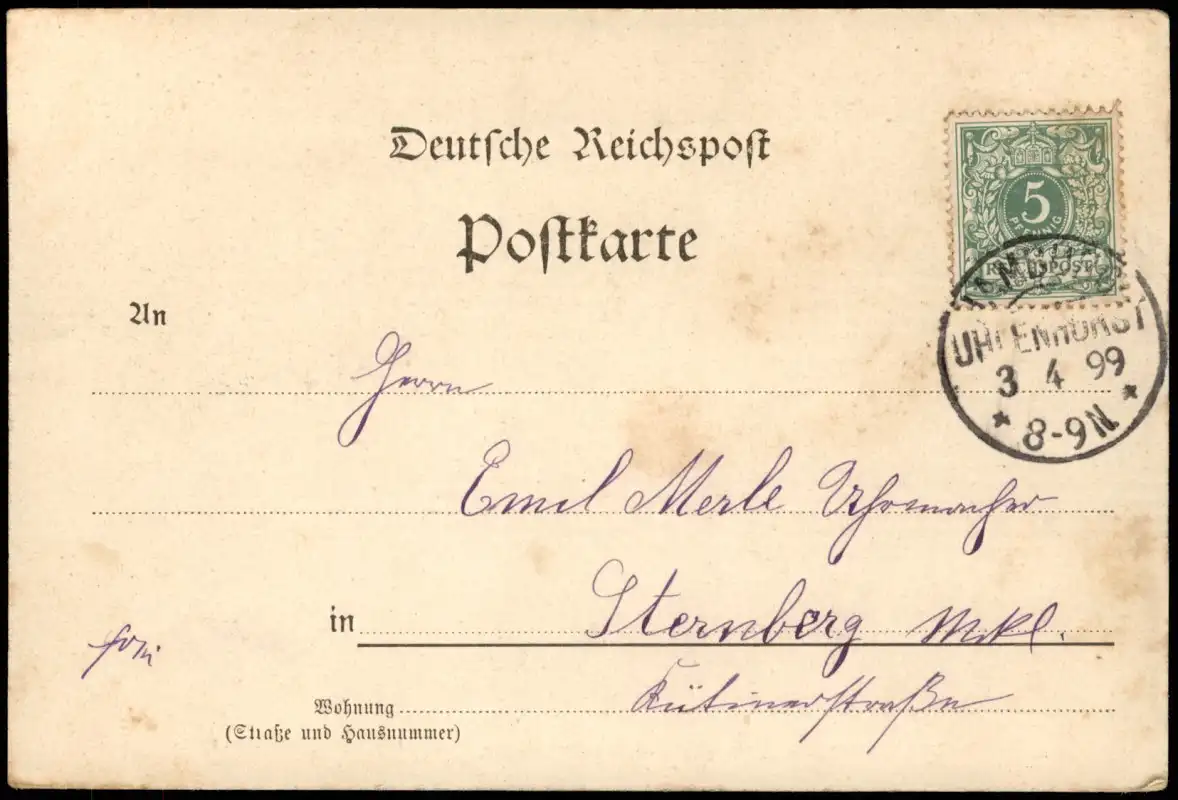 Deutsche Reichspost
Postkarte
5
PFENNIG
REICHSPOST
UHLENHORST
3 4 99
* 8-9N *
An
Herrn
Emil Merle Uhrmacher
in Sternberg Mkl.
Wohnung
(Straße und Hausnummer)